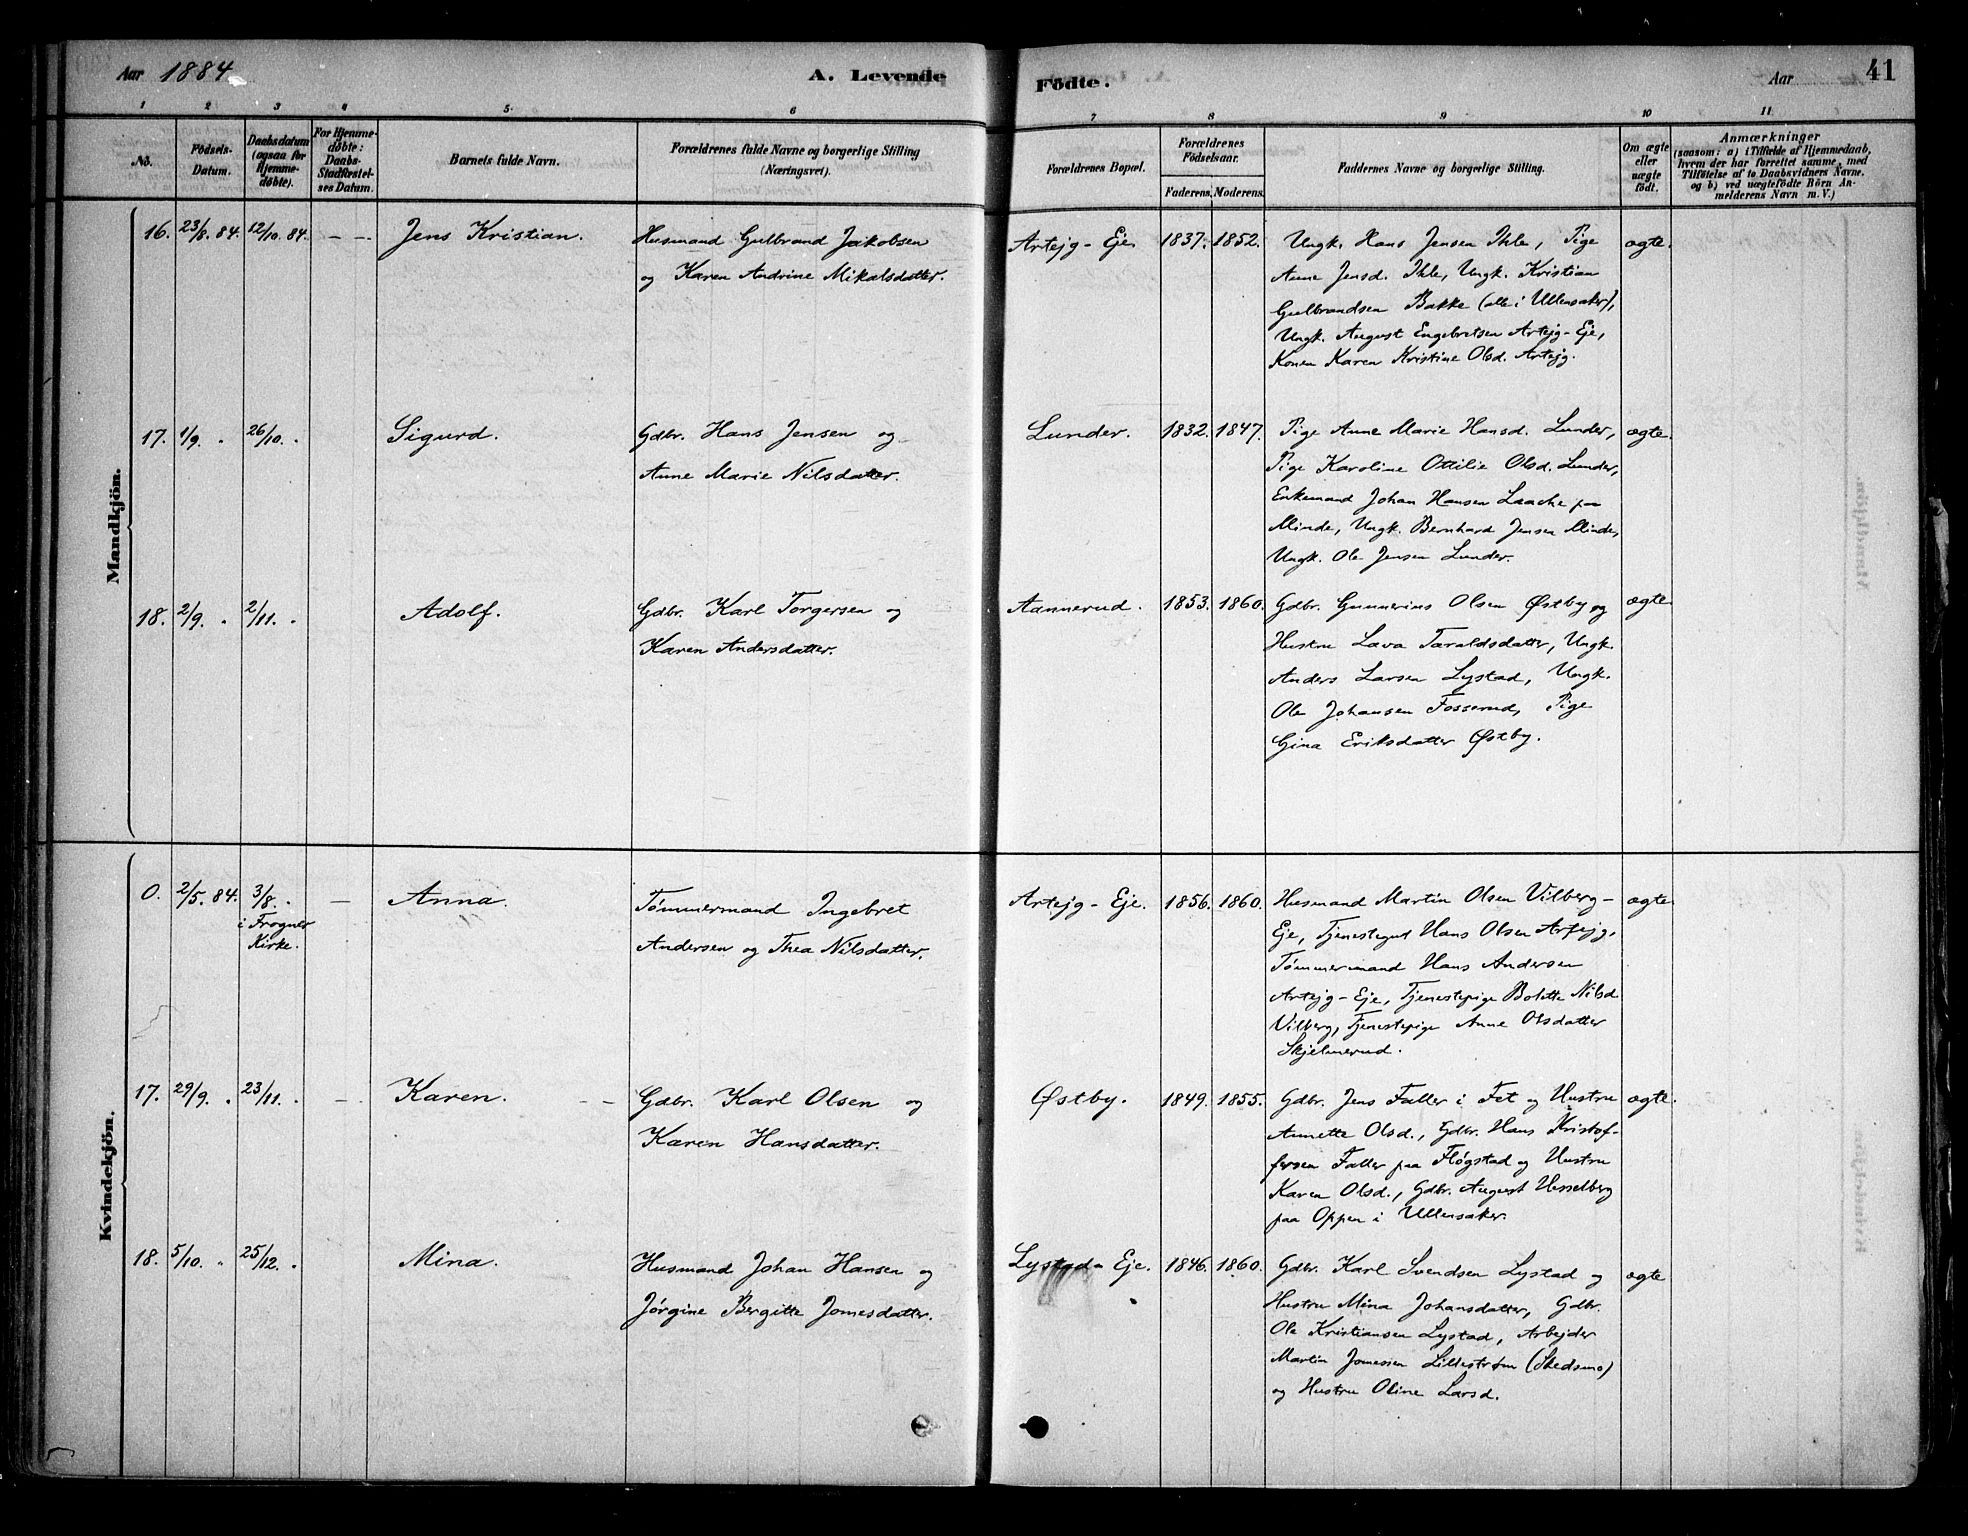 Aar 1884
A. Levende
Födte.
Aar
41
1 2 3 4 5. 6 7 8 9 10 11
No.
Födsels-
Datum.
Daabsdatum
(ogsaa for
Hjemme-
döbte).
For Hjemme-
döbte:
Daabs-
Stadfæstel-
ses Datum.
Barnets fulde Navn.
Forældrenes fulde Navne og borgerlige Stilling
(Næringsvei).
Forældrenes Bopæl.
Forældrenes
Födselsaar.
Faderens. Moderens.
Faddernes Navne og borgerlige Stilling.
Om ægte
eller
uægte
födt.
Anmærkninger
(saasom: a) i Tilfælde af Hjemmedaab,
hvem der har forrettet samme, med
Tilföielse af to Daabsvidners Navne,
og b) ved uægtefödte Börn An-
melderens Navn m. V.)
Mandkjön.
16. 23/8. 84. 12/10. 84. — — Jens Kristian.
Husmand Gulbrand Jakobsen
og Karen Andrine Mikalsdatter.
Artejg - Eje 1837. 1852.
Ungk. Hans Jensen Ihle, Pige
Anne Jensd. Ihle, Ungk. Kristian
Gulbrandsen Bakke (alle i Ullensaker),
Ungk. August Engebretsen Artejg - Eje,
Konen Karen Kristine Olsd. Artejg.
ægte.
17. 1/9. " 26/10. " Sigurd.
Gdbr. Hans Jensen og
Anne Marie Nilsdatter.
Lunder. 1832. 1847.
Pige Anne Marie Hansd. Lunder,
Pige Karoline Ottilie Olsd. Lunder,
Enkemand Johan Hansen Laache paa
Minde, Ungk. Bernhard Jensen Minde,
Ungk. Ole Jensen Lunder.
ægte.
18. 2/9. " 2/11. " Adolf.
Gdbr. Karl Torgersen og
Karen Andersdatter.
Aannerud. 1853. 1860.
Gdbr. Gunnerius Olsen Østby og
Hustru Lava Taraldsdatter, Ungk.
Anders Larsen Lystad, Ungk.
Ole Johansen Fosserud, Pige
Gina Eriksdatter Østby.
ægte.
Kvindekjön.
0. 2/5. 84. 3/8. "
i Frogner
Kirke.
— Anna.
Tømmermand Ingebret
Andersen og Thea Nilsdatter.
Artejg - Eje. 1856. 1860.
Husmand Martin Olsen Vilberg -
Eje, Tjenestegut Hans Olsen Artejg,
Tømmermand Hans Andersen
Artejg - Eje, Tjenestepige Bolette Nilsd
Vilberg, Tjenestepige Anne Olsdatter
Skjelmerud.
ægte
17. 29/9. " 23/11. " — Karen. — —
Gdbr. Karl Olsen og
Karen Hansdatter.
Østby. 1849. 1855.
Gdbr. Jens Faller i Fet og Hustru
Annette Olsd., Gdbr. Hans Kristof-
fersen Faller paa Fløgstad og Hustru
Karen Olsd., Gdbr. August Hesselberg
paa Oppen i Ullensaker.
ægte.
18. 5/10. " 25/12. " Mina.
Husmand Johan Hansen og
Jørgine Bergitte Jonesdatter.
Lystad - Eje. 1846. 1860.
Gdbr. Karl Svendsen Lystad og
Hustru Mina Johansdatter, Gdbr.
Ole Kristiansen Lystad, Arbejder
Martin Jonessen Lillestrøm (Skedsmo)
og Hustru Oline Larsd.
ægte